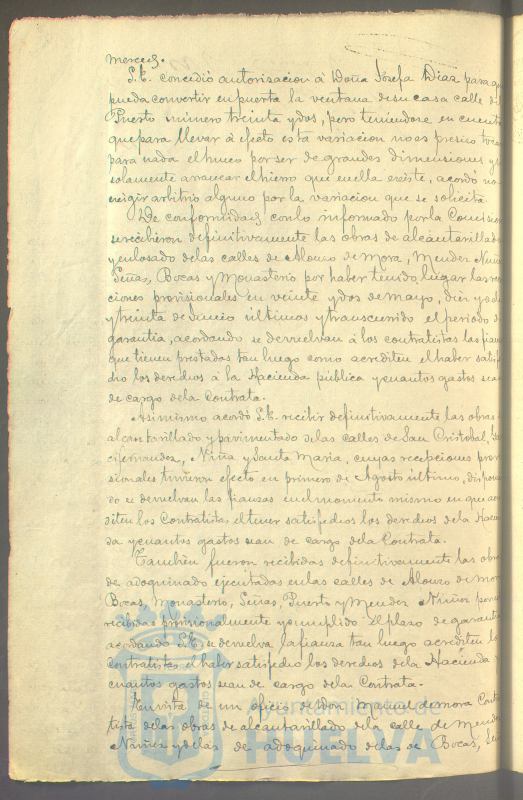 merced.
S.E. concedió autorizacion á Doña Josefa Diaz para q
pueda convertir en puerta la ventana de su casa calle d
Puerto número treinta y dos, pero teniendose en cuenta
que para llevar á efecto esta variacion no es preciso toca
para nada el hueco por ser de grandes dimensiones y
solamente arrancar el hierro que en ella existe, acordó no
exigir arbitrio alguno por la variacion que se solicita.
De conformidad con lo informado por la Comision
se recibieron definitivamente las obras de alcantarillado
y enlosado de las calles de Alonso de Mora, Mendez Nuñe
Señas, Bocas y Monasterio por haber tenido lugar las rec
ciones provisionales en veinte y dos de mayo, diez y
y treinta de Junio últimos y transcurrido el periodo d
garantia, acordando se devuelvan á los contratistas las fian
que tienen prestadas tan luego como acrediten el haber satis
cho los derechos á la Hacienda pública y cuantos gastos sea
de cargo de la Contrata.
Asimismo acordó S.E. recibir definitivamente las obras
alcantarillado y pavimentado de las calles de San Cristobal,
Fernandez, Niña y Santa Maria, cuyas recepciones prov
sionales tuvieron efecto en primero de Agosto último, dispon
do se devuelvan las fianzas en el momento mismo en que acr
diten los Contratistas el tener satisfechos los derechos de la Hacien
da y cuantos gastos sean de cargo de la Contrata.
Tambien fueron recibidas definitivamente las obra
de adoquinado ejecutadas en las calles de Alonso de Mor
Bocas, Monasterio, Señas, Puerto y Mendez Nuñez por
recibidas provisionalmente y cumplido el plazo de garantia
acordando S.E. se devuelva la fianza tan luego acrediten lo
Contratistas el haber satisfecho los derechos de la Hacienda y
cuantos gastos sean de cargo de la Contrata.
En vista de un oficio de Don Manuel de mora Contra
tista de las obras de alcantarillado de la calle de Mende
Nuñez y de las de adoquinado de las de Bocas, Señ
Ayuntamiento de
HUELVA